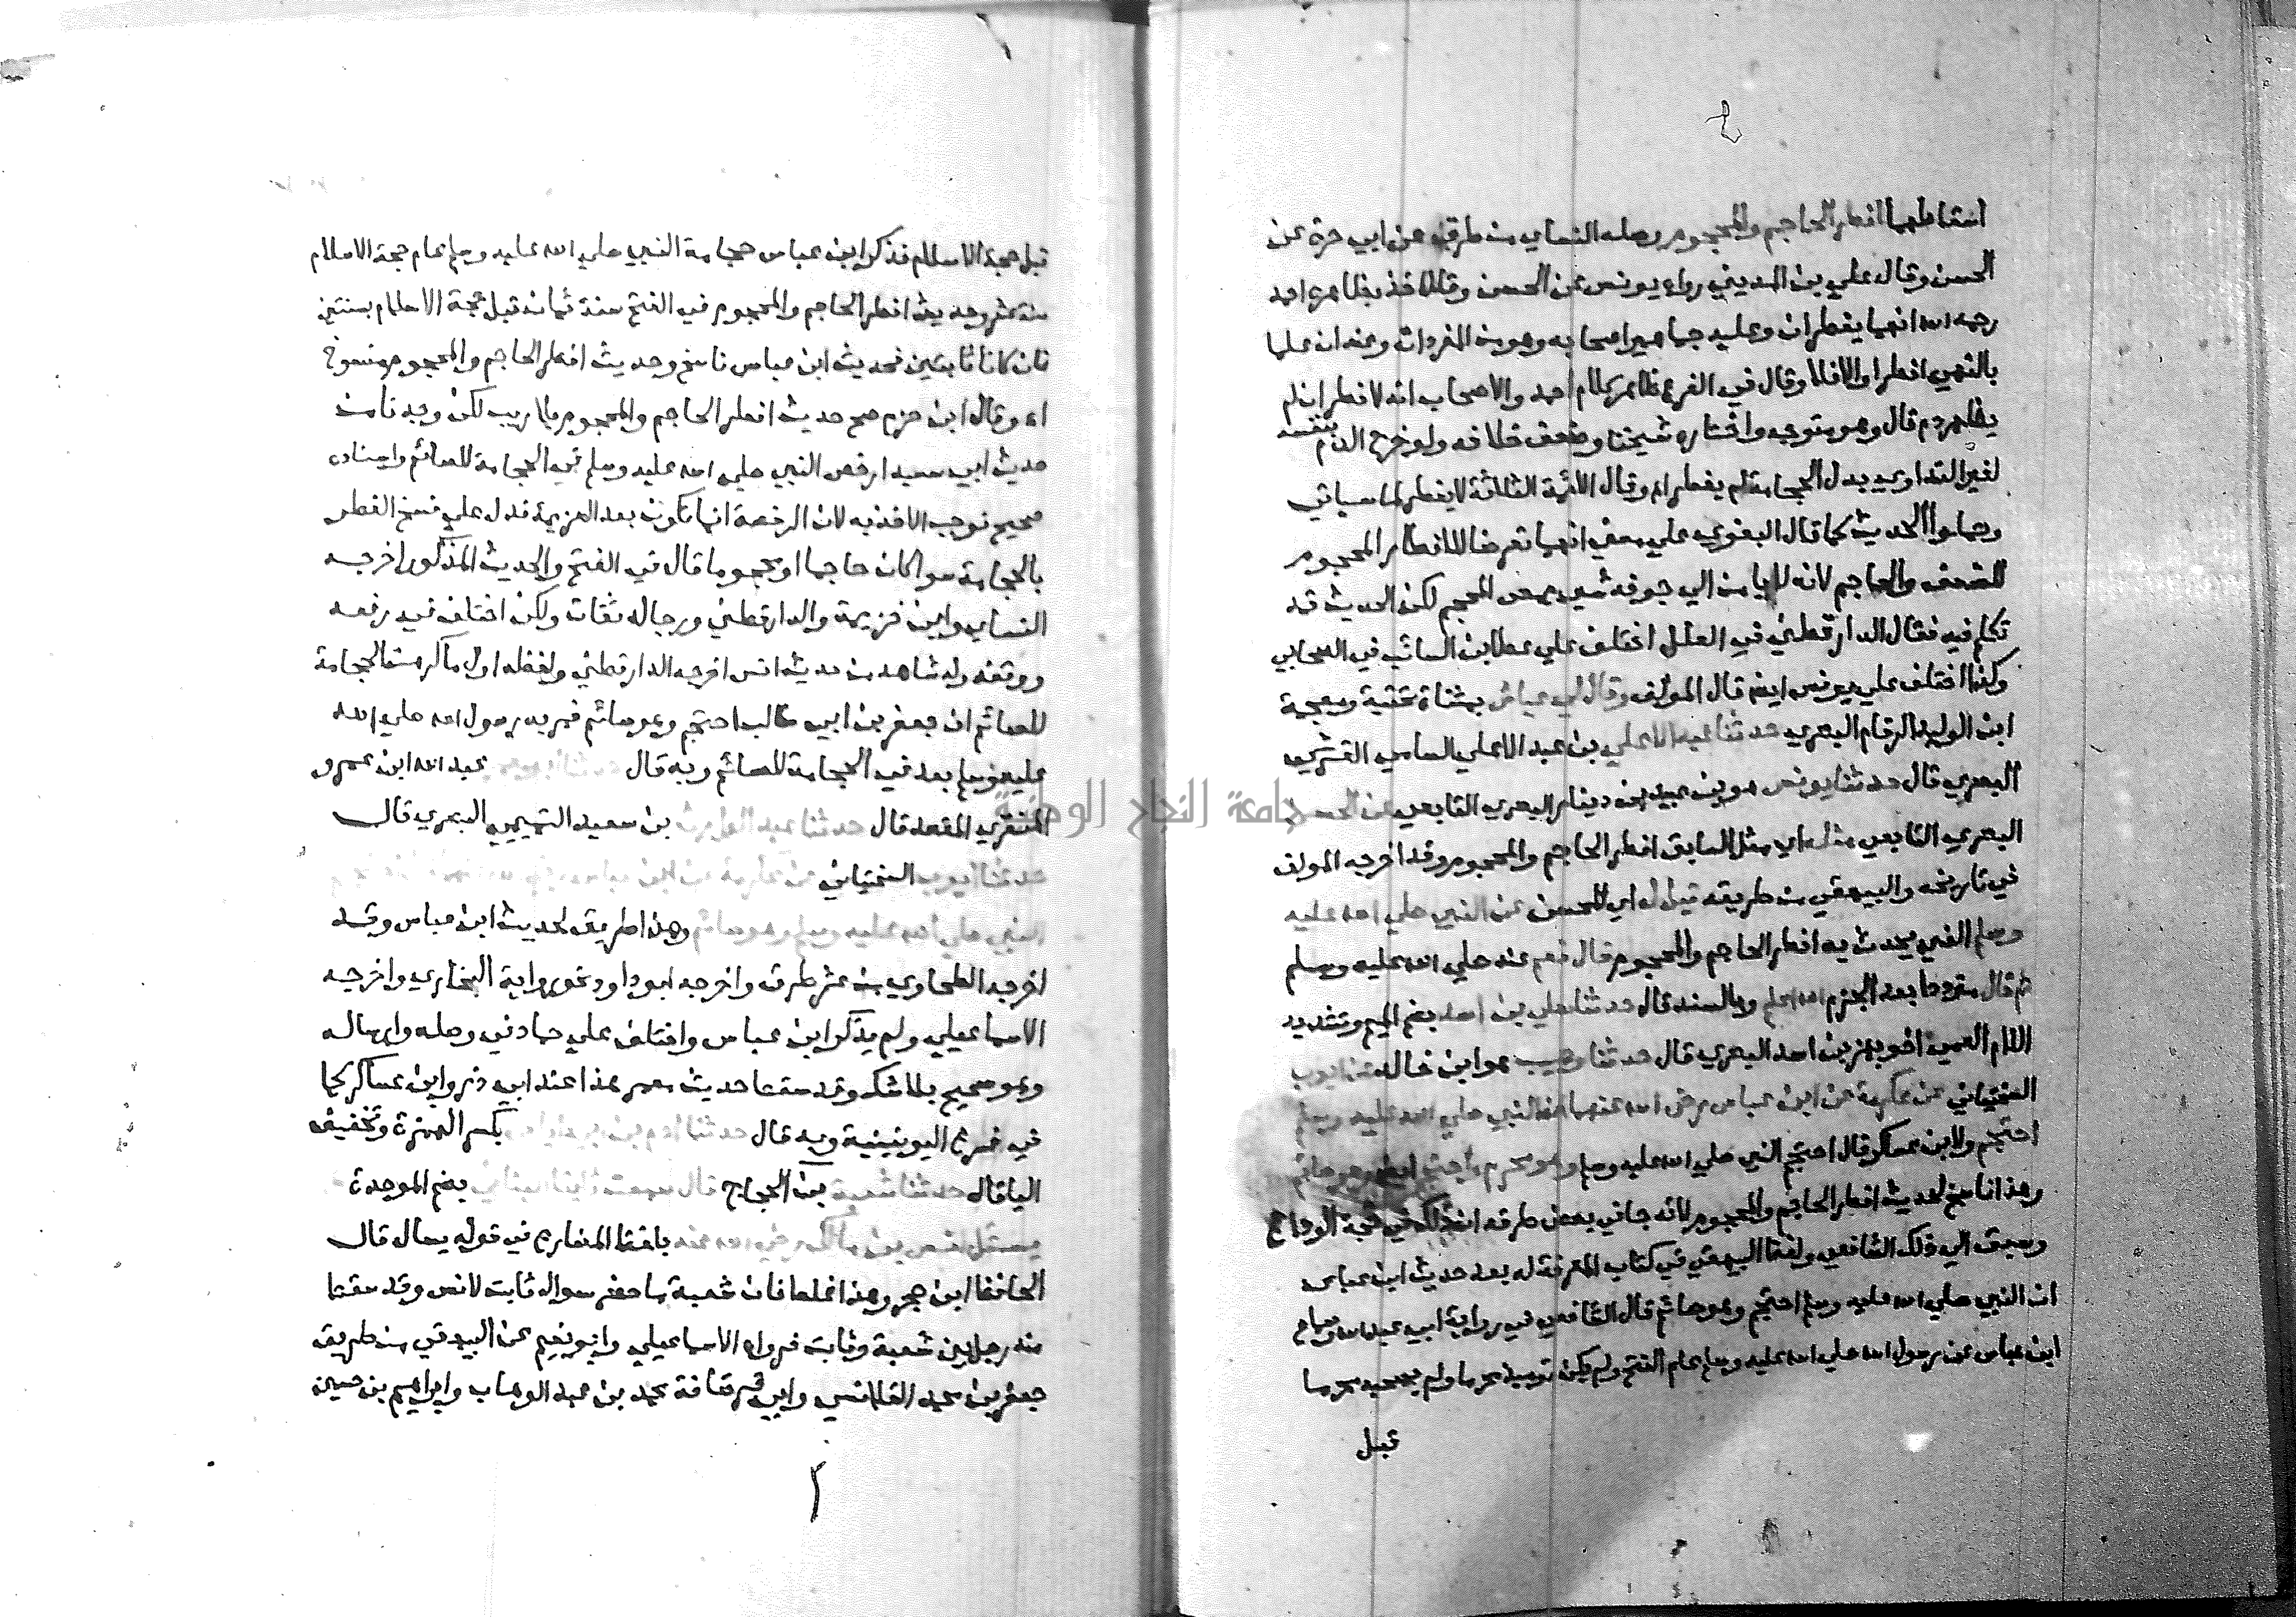 اسقاطهما افطر الحاجم والمحجوم وصله النساي من طرق عن ابي حرة عن
الحسن وقال علي بن المديني رواه يونس عن الحسن وقد اخذ بظاهره احمد
رحمه الله انهما يفطران وعليه جماهير اصحابه وهو من المفردات وعنه ان علما
بالنهي افطرا والا فلا وقال في الفرع ظاهر كلام احمد والاصحاب انه لا فطر ان لم
يظهر دم قال وهو متوجه واختاره شيخنا وضعف خلافه ولو خرج الدم بنفسه
لغير التداوي بدل الحجامة لم يفطر اه وقال الائمة الثلاثة لا يفطر لما سياتي
وحملوا الحديث كما قال البغوي على معني انهما تعرضا للافطار المحجوم
للضعف والحاجم لانه لا يامن ان يصل الي جوفه شي بمص المحجم لكن الحديث قد
تكلم فيه فقال الدارقطني في العلل اختلف علي عطا بن السائب في الصحابي
وكذا اختلف علي يونس ايضا قال المولف وقال لي عياش بمثناة تحتية ومعجمة
ابن الوليد الرقام البصري حدثنا عبد الاعلي بن عبد الاعلي السامي القرشي
البصري قال حدثنا يونس هو بن عبيد بن دينار البصري التابعي عن الحسن
البصري التابعي مثله اي مثل السابق افطر الحاجم والمحجوم وقد اخرجه المولف
في تاريخه والبيهقي من طريقه قيل له اي للحسن عن النبي صلي الله عليه
وسلم الذي يحدث به افطر الحاجم والمحجوم قال نعم عنه صلي الله عليه وسلم
ثم قال مترددا بعد الجزم الله اعلم وبالسند قال حدثنا معلي بن اسد بضم الميم وتشديد
اللام العمي اخو بهز بن اسد البصري قال حدثنا وهيب هو ابن خالد عن ايوب
السختياني عن عكرمة عن ابن عباس رضي الله عنهما ان النبي صلي الله عليه وسلم
احتجم ولابن عساكر قال احتجم النبي صلي الله عليه وسلم وهو محرم واحتجم ايضا وهو صائم
وهذا ناسخ لحديث افطر الحاجم والمحجوم لانه جا في بعض طرقه ان ذلك في حجة الوداع
وسبق الي ذلك الشافعي ولفظ البيهقي في كتاب المعرفة له بعد حديث ابن عباس
ان النبي صلي الله عليه وسلم احتجم وهو صائم قال الشافعي في رواية ابي عبد الله وسماع
ابن عباس عن رسول الله صلي الله عليه وسلم عام الفتح ولم يكن يوميذ محرما ولم يصحبه محرما
قبل
قبل حجة الاسلام فذكر ابن عباس حجامة النبي صلي الله عليه وسلم عام حجة الاسلام
سنة عشر وحديث افطر الحاجم والمحجوم في الفتح سنة ثمان قبل حجة الاسلام بسنتين
فان كانا ثابتين فحديث ابن عباس ناسخ وحديث افطر الحاجم والمحجوم منسوخ
اه وقال ابن حزم صح حديث افطر الحاجم والمحجوم بلا ريب لكن وجدنا من
حديث ابي سعيد ارخص النبي صلي الله عليه وسلم في الحجامة للصائم واسناده
صحيح فوجب الاخذ به لان الرخصة انما تكون بعد العزيمة فدل علي نسخ الفطر
بالحجامة سوا كان حاجما او محجوما قال في الفتح والحديث المذكور اخرجه
النساي وابن خزيمة والدارقطني ورجاله ثقات ولكن اختلف في رفعه
ووقفه وله شاهد من حديث انس اخرجه الدارقطني ولفظه اول ما كرهت الحجامة
للصائم ان جعفر بن ابي طالب احتجم وهو صائم فمر به رسول الله صلي الله
عليه وسلم بعد في الحجامة للصائم وبه قال عبد الله ابن عمرو
المنقري المقعد قال حدثنا عبد الوارث بن سعيد التميمي البصري قال
حدثنا ايوب السختياني عن عكرمة عن ابن عباس
النبي صلي الله عليه وسلم وهو صائم وهذا طريق لحديث ابن عباس وقد
اخرجه الطحاوي من عشر طرق واخرجه ابو داود نحو رواية البخاري واخرجه
الاسماعيلي ولم يذكر ابن عباس واختلف علي حماد في وصله وارساله
وهو صحيح بلا شك وقد سقط حديث معمر هذا عند ابي ذر وابن عساكر كما
في فرع اليونينية وبه قال حدثنا ادم بن ابي اياس بكسر الهمزة وتخفيف
اليا قال حدثنا شعبة بن الحجاج قال سمعت ثابتا البناني بضم الموحدة
يسئل انس بن مالك رضي الله عنه بلفظ المضارع في قوله يسال قال
الحافظ ابن حجر وهذا غلط فان شعبة ما حضر سوال ثابت لانس وقد سقط
منه رجل بين شعبة وثابت فرواه الاسماعيلي وابو نعيم عن البيهقي من طريق
جعفر بن محمد القلانسي وابي قرصافة محمد بن عبد الوهاب وابراهيم بن حسين
جامعة النجاح الوطنية